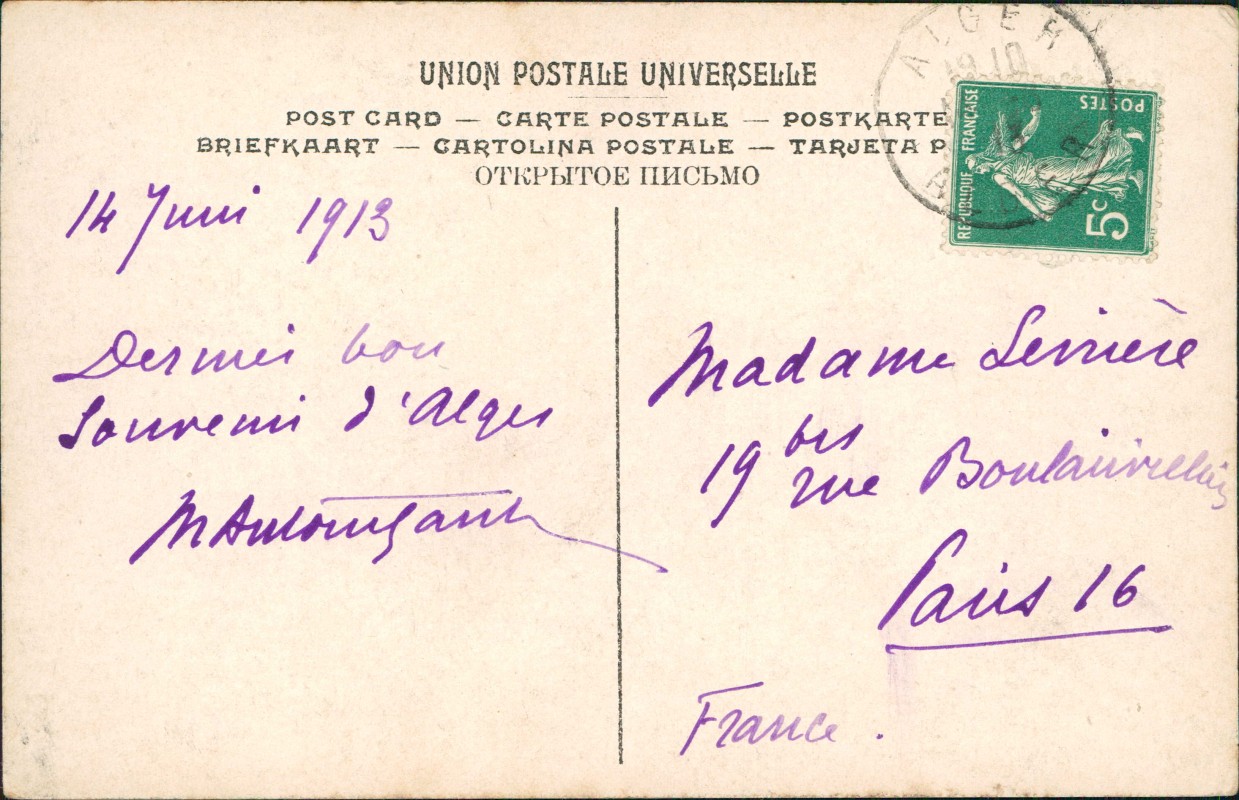 UNION POSTALE UNIVERSELLE
POST CARD — CARTE POSTALE — POSTKARTE
BRIEFKAART — CARTOLINA POSTALE — TARJETA P
ОТКРЫТОЕ ПИСЬМО
ALGER
REPUBLIQUE FRANÇAISE
POSTES
5c
14 Juin 1913
Dernier bon
Souvenir d'Alger
Madame Serrière
19 bis rue Boulainvilliers
Paris 16
France.